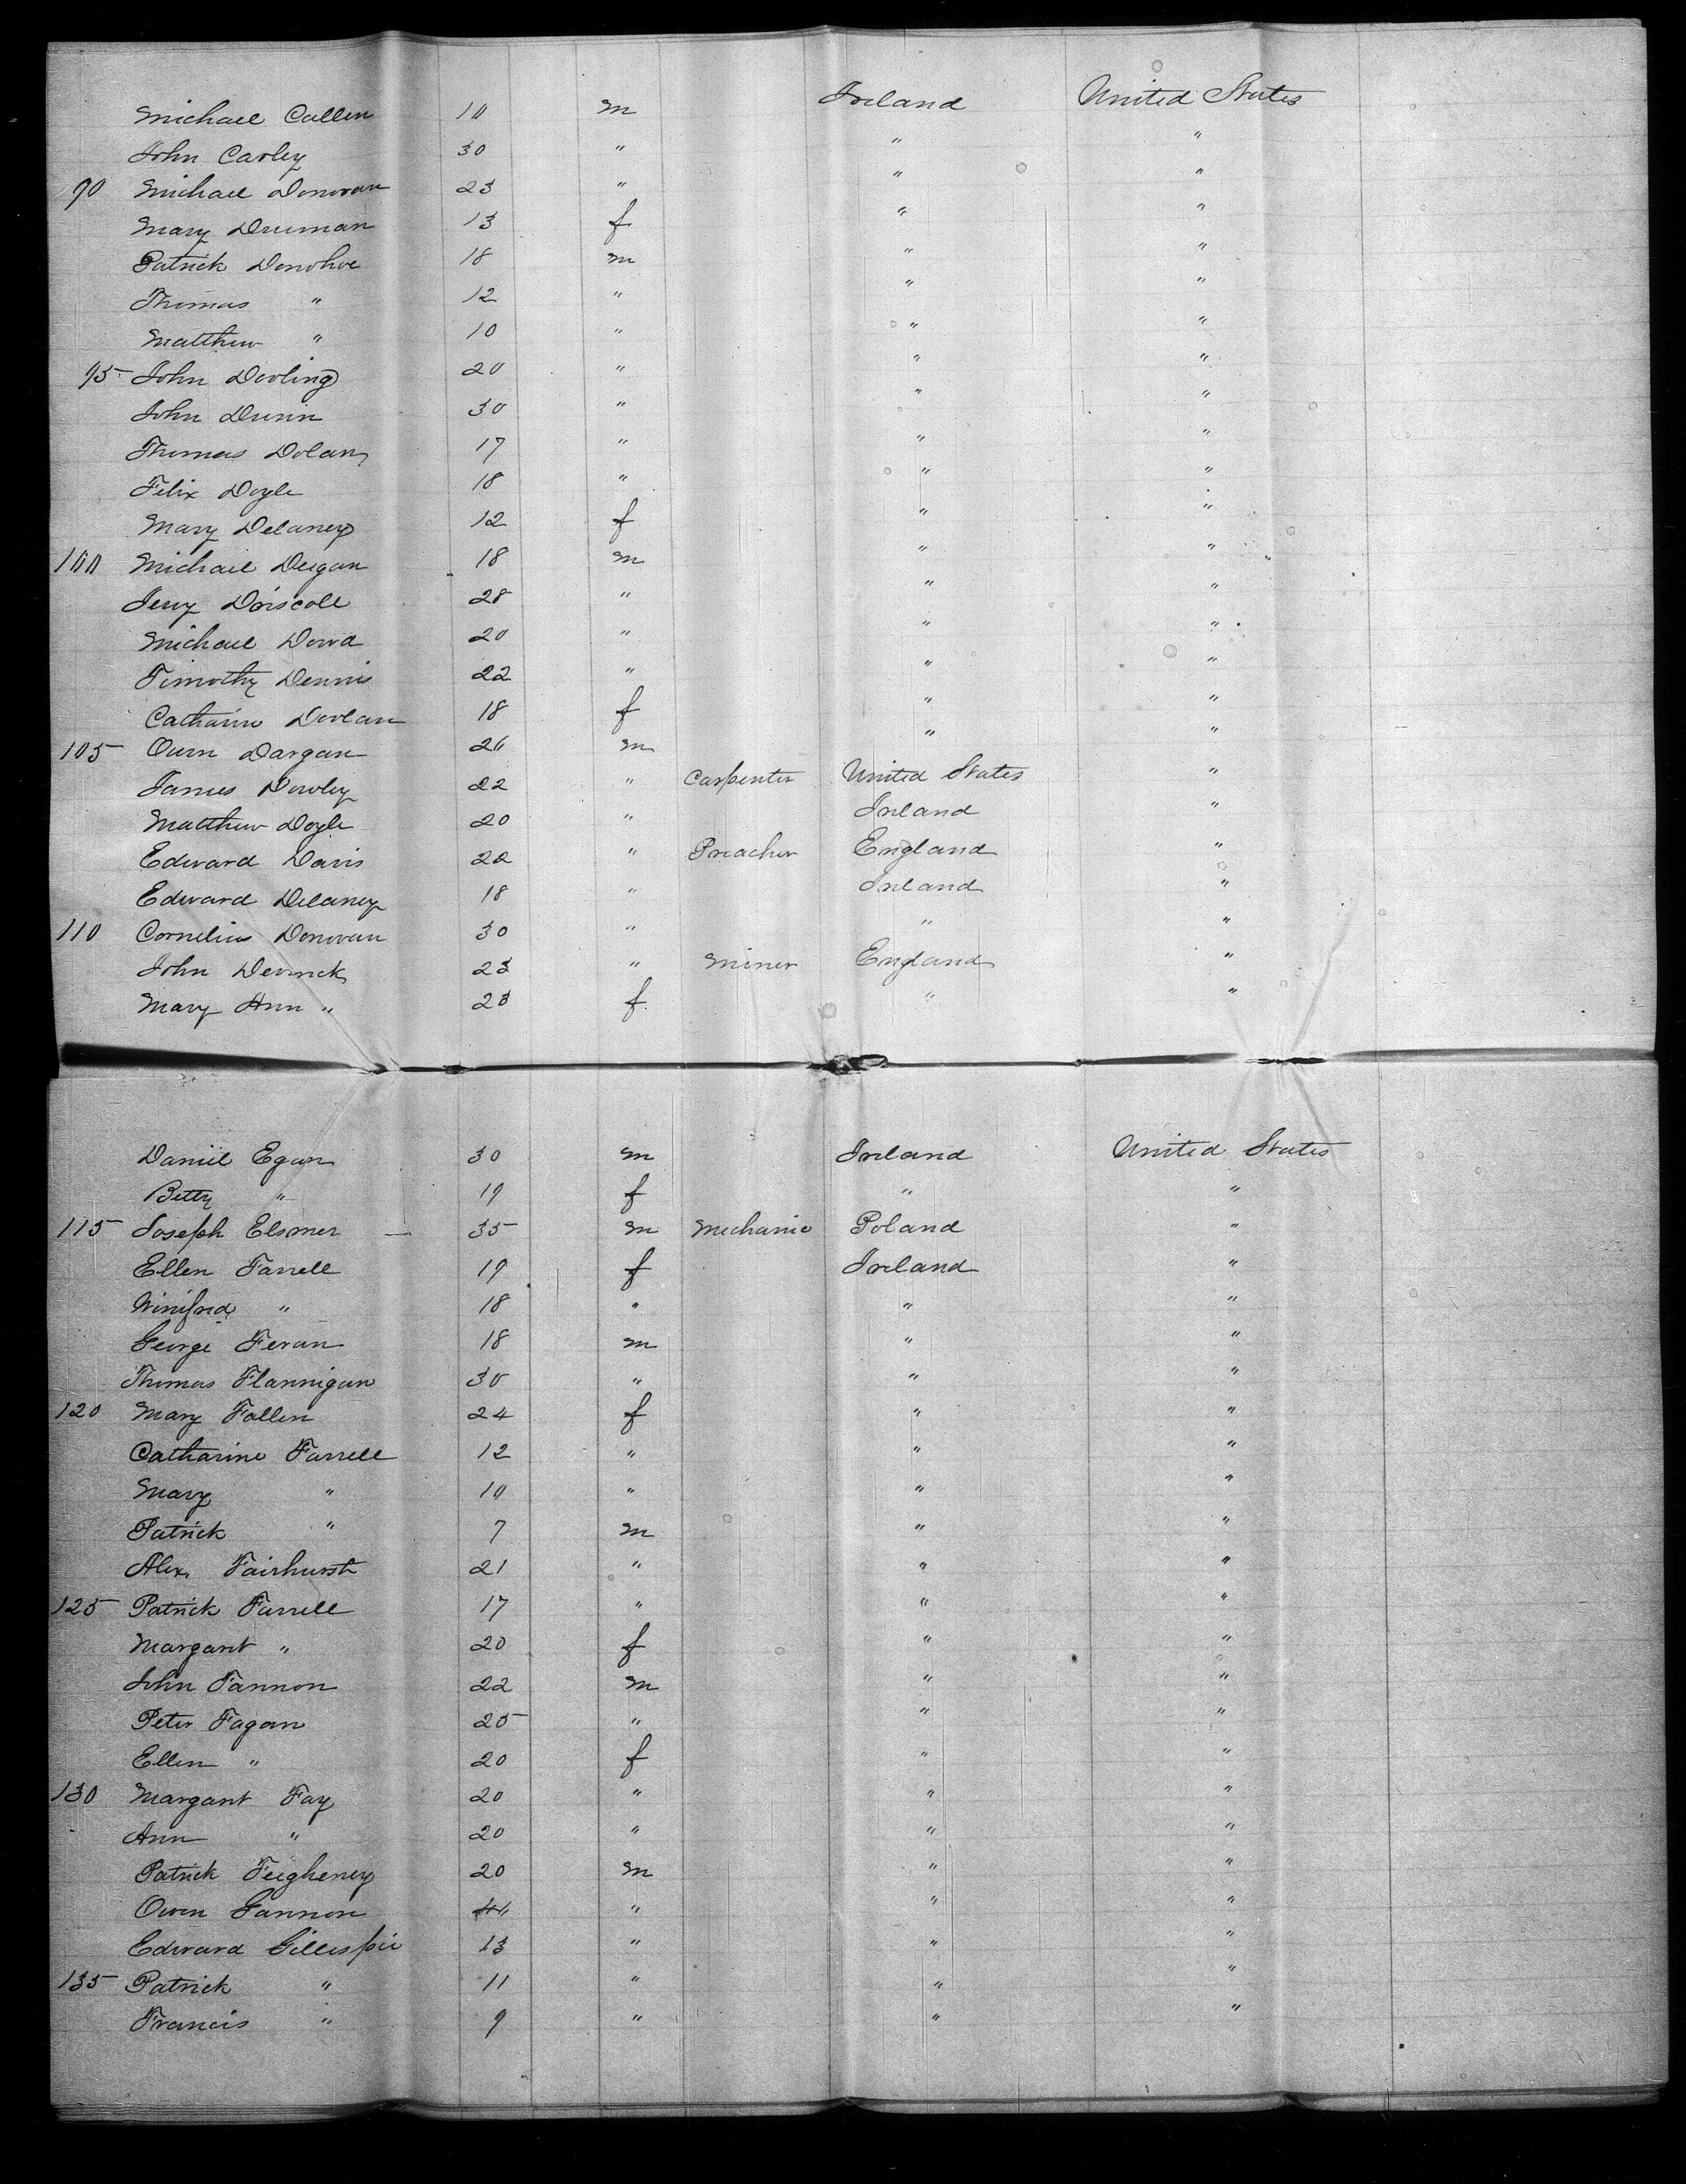 Michael Cullen 10 m Ireland United States
John Carley 30 " " "
90 Michael Donovan 23 " " "
Mary Druman 13 f " "
Patrick Donohoe 18 m " "
Thomas " 12 " " "
Matthew " 10 " " "
95 John Dooling 20 " " "
John Dunn 30 " " "
Thomas Dolan 17 " " "
Felix Doyle 18 " " "
Mary Delaney 12 f " "
100 Michael Deigan 18 m " "
Jerry Driscoll 28 " " "
Michael Dowd 20 " " "
Timothy Dennis 22 " " "
Catharine Doolan 18 f " "
105 Owen Dargan 20 m " "
James Dowley 22 " Carpenter United States "
Matthew Doyle 20 " Ireland "
Edward Davis 22 " Preacher England "
Edward Delaney 18 " Ireland "
110 Cornelius Donovan 30 " " "
John Derrick 23 " Miner England "
Mary Ann " 23 f " "
Daniel Egan 30 m Ireland United States
Betty " 19 f " "
115 Joseph Elsmer — 35 m Mechanic Poland "
Ellen Farrell 19 f Ireland "
Winifred " 18 " " "
George Feran 18 m " "
Thomas Flannigan 30 " " "
120 Mary Fallen 24 f " "
Catharine Farrell 12 " " "
Mary " 10 " " "
Patrick " 7 m " "
Alex. Fairhurst 21 " " "
125 Patrick Farrell 17 " " "
Margaret " 20 f " "
John Fannon 22 m " "
Peter Fagan 25 " " "
Ellen " 20 f " "
130 Margaret Fay 20 " " "
Ann " 20 " " "
Patrick Feigheney 20 m " "
Owen Gannon " " "
Edward Gillespie 13 " " "
135 Patrick " 11 " " "
Francis " 9 " " "